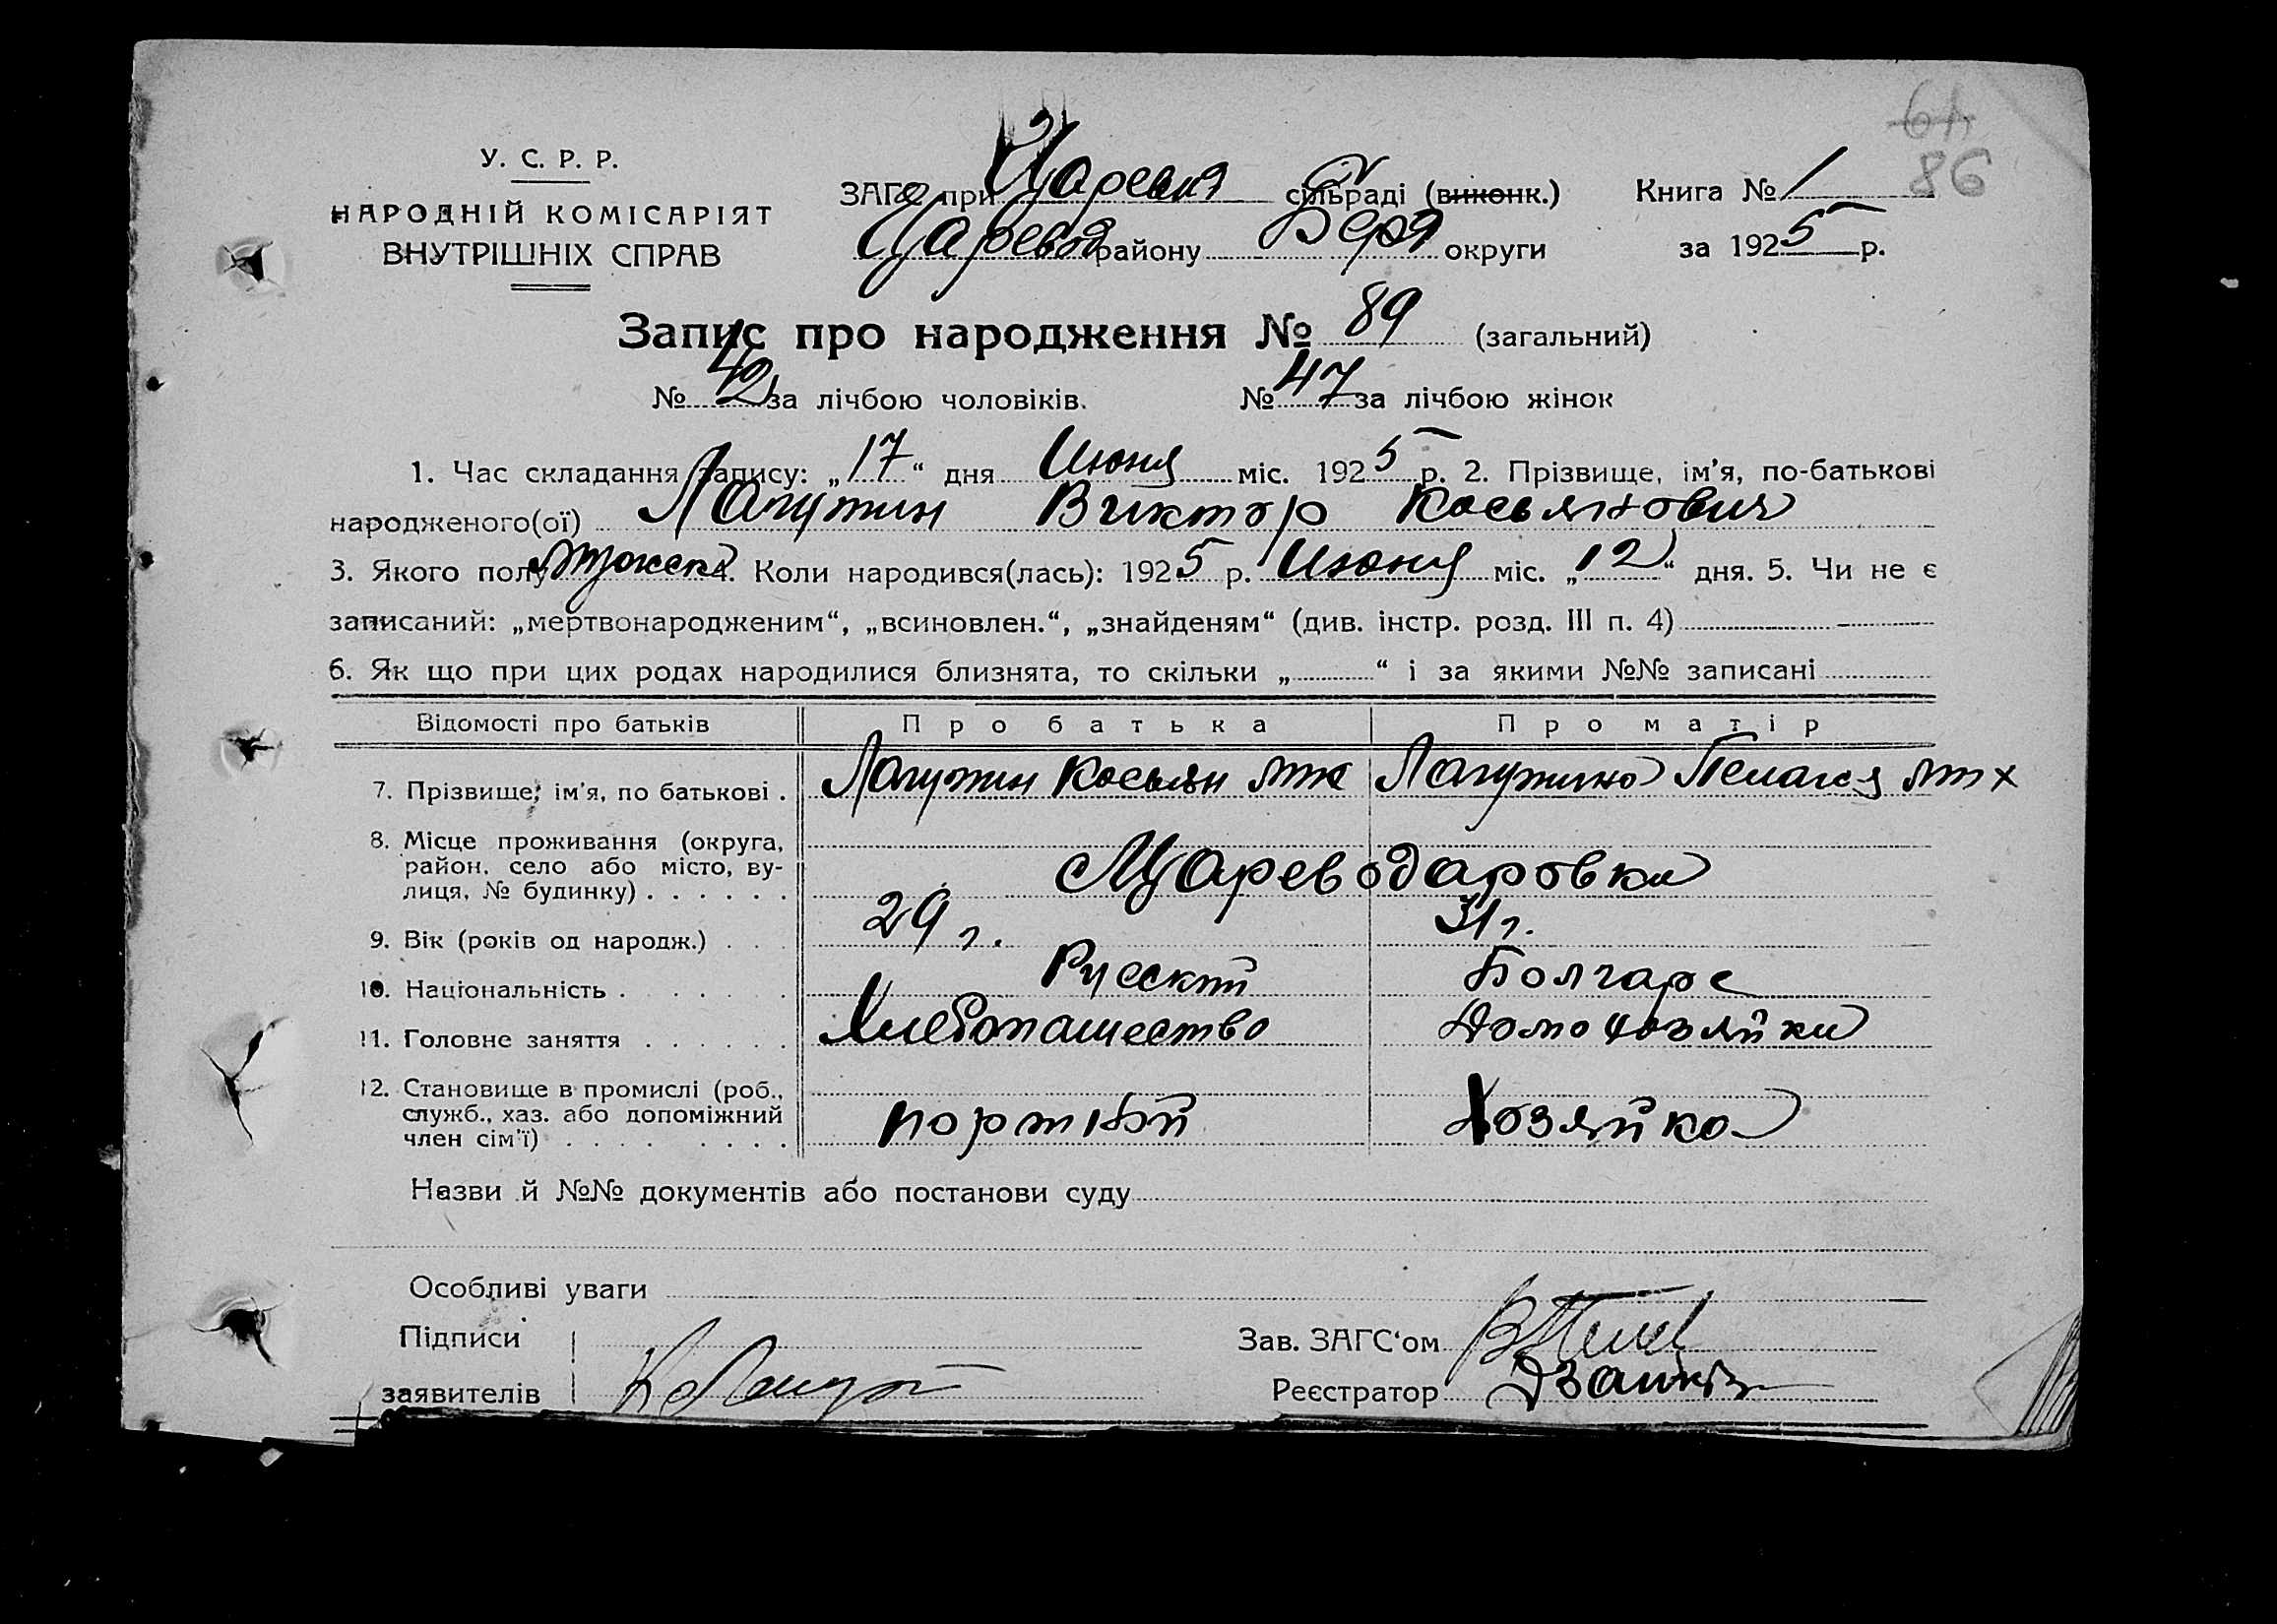 61
86
У. С. Р. Р.
НАРОДНІЙ КОМІСАРІЯТ
ВНУТРІШНІХ СПРАВ
ЗАГС при сільраді (виконк.) Книга № 1
Царевод району округи за 1925 р.
Запис про народження № 89 (загальний)
№ 42 за лічбою чоловіків. № 47 за лічбою жінок
1. Час складання запису: „17“ дня Июня міс. 1925 р. 2. Прізвище, ім'я, по-батькові
народженого(ої) Лагутин Виктор Касьянович
3. Якого полу Мужск 4. Коли народився(лась): 1925 р. Июня міс. „12“ дня. 5. Чи не є
записаний: „мертвонародженим“, „всиновлен.“, „знайденям“ (див. інстр. розд. III п. 4)
6. Як що при цих родах народилися близнята, то скільки „ “ і за якими №№ записані
Відомості про батьків Про батька Про матір
7. Прізвище, ім'я, по батькові . Лагутин Касьян Лагутина Пелагея
8. Місце проживання (округа,
район, село або місто, ву-
лиця, № будинку) . . . . . . Цареводаровка
9. Вік (років од народж.) . . . 29 г. 31 г.
10. Національність . . . . . . Русский Болгарс
11. Головне заняття . . . . . . Хлебопашество Домохозяйка
12. Становище в промислі (роб.,
служб., хаз. або допоміжний
член сім'ї) . . . . . . . . портной Хозяйка
Назви й №№ документів або постанови суду
Особливі уваги
Підписи Зав. ЗАГС'ом
заявителів Реєстратор